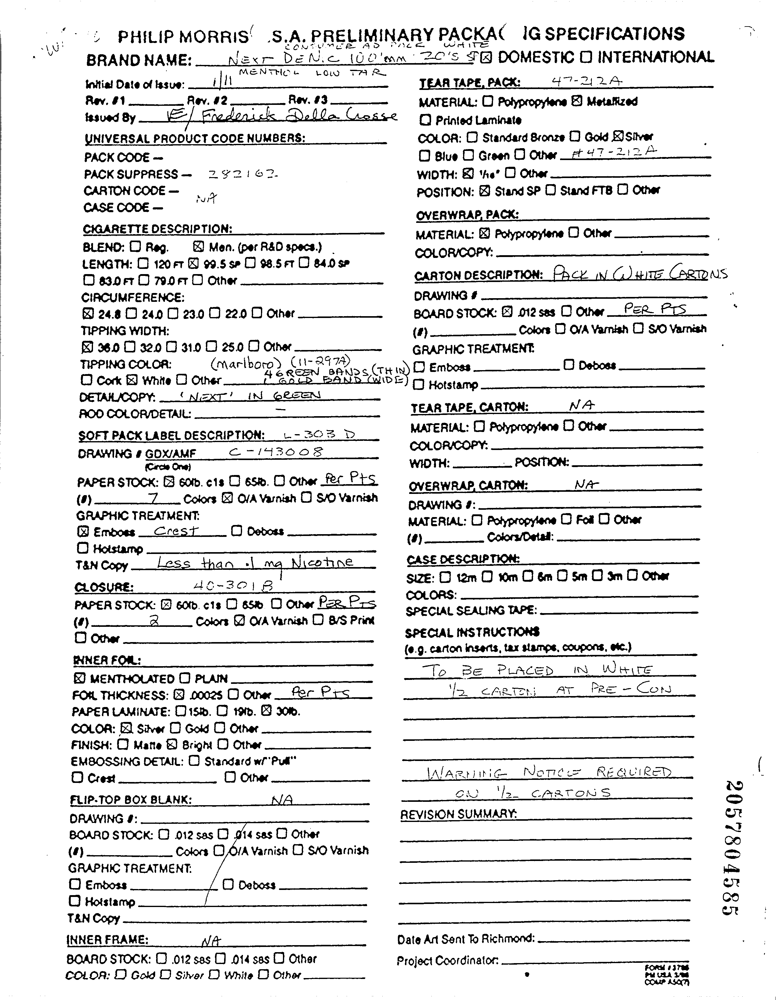 PHILIP MORRIS .S.A. PRELIMINARY PACKA IG SPECIFICATIONS
CONSUMER AD PACK WHITE
BRAND NAME: NEXT DE NIC 100'mm 20'S ☒ DOMESTIC ☐ INTERNATIONAL
MENTHOL LOW TAR
Initial Date of Issue: 1/11
Rev. #1 Rev. #2 Rev. #3
Issued By E/ Frederick Della Crosse
UNIVERSAL PRODUCT CODE NUMBERS:
PACK CODE —
PACK SUPPRESS — 282162
CARTON CODE —
NA
CASE CODE —
CIGARETTE DESCRIPTION:
BLEND: ☐ Reg. ☒ Men. (per R&D specs.)
LENGTH: ☐ 120 FT ☒ 99.5 SP ☐ 98.5 FT ☐ 84.0 SP
☐ 83.0 FT ☐ 79.0 FT ☐ Other
CIRCUMFERENCE:
☒ 24.8 ☐ 24.0 ☐ 23.0 ☐ 22.0 ☐ Other
TIPPING WIDTH:
☒ 36.0 ☐ 32.0 ☐ 31.0 ☐ 25.0 ☐ Other
TIPPING COLOR: (marlboro) (11-297A)
4 GREEN BANDS (THIN)
☐ Cork ☒ White ☐ Other 1 GOLD BAND (WIDE)
DETAIL/COPY: 'NEXT' IN GREEN
ROD COLOR/DETAIL: —
SOFT PACK LABEL DESCRIPTION: L-303 D
DRAWING # GDX/AMF C-143008
(Circle One)
PAPER STOCK: ☒ 60lb. c1s ☐ 65lb. ☐ Other Per Pts
(#) 7 Colors ☒ O/A Varnish ☐ S/O Varnish
GRAPHIC TREATMENT:
☒ Emboss Crest ☐ Deboss
☐ Hotstamp
T&N Copy Less than .1 mg Nicotine
CLOSURE: 40-301B
PAPER STOCK: ☒ 60lb. c1s ☐ 65lb ☐ Other PER PTS
(#) 2 Colors ☒ O/A Varnish ☐ B/S Print
☐ Other
INNER FOIL:
☒ MENTHOLATED ☐ PLAIN
FOIL THICKNESS: ☒ .00025 ☐ Other Per Pts
PAPER LAMINATE: ☐ 15lb. ☐ 19lb. ☒ 30lb.
COLOR: ☒ Silver ☐ Gold ☐ Other
FINISH: ☐ Matte ☒ Bright ☐ Other
EMBOSSING DETAIL: ☐ Standard w/"Pull"
☐ Crest ☐ Other
FLIP-TOP BOX BLANK: NA
DRAWING #:
BOARD STOCK: ☐ .012 sbs ☐ .014 sbs ☐ Other
(#) Colors ☐ O/A Varnish ☐ S/O Varnish
GRAPHIC TREATMENT:
☐ Emboss ☐ Deboss
☐ Hotstamp
T&N Copy
INNER FRAME: NA
BOARD STOCK: ☐ .012 sbs ☐ .014 sbs ☐ Other
COLOR: ☐ Gold ☐ Silver ☐ White ☐ Other
TEAR TAPE, PACK: 47-212A
MATERIAL: ☐ Polypropylene ☒ Metallized
☐ Printed Laminate
COLOR: ☐ Standard Bronze ☐ Gold ☒ Silver
☐ Blue ☐ Green ☐ Other #47-212A
WIDTH: ☒ 1/16" ☐ Other
POSITION: ☒ Stand SP ☐ Stand FTB ☐ Other
OVERWRAP, PACK:
MATERIAL: ☒ Polypropylene ☐ Other
COLOR/COPY:
CARTON DESCRIPTION: PACK IN WHITE CARTONS
DRAWING #
BOARD STOCK: ☒ .012 sbs ☐ Other PER PTS
(#) Colors ☐ O/A Varnish ☐ S/O Varnish
GRAPHIC TREATMENT:
☐ Emboss ☐ Deboss
☐ Hotstamp
TEAR TAPE, CARTON: NA
MATERIAL: ☐ Polypropylene ☐ Other
COLOR/COPY:
WIDTH: POSITION:
OVERWRAP, CARTON: NA
DRAWING #:
MATERIAL: ☐ Polypropylene ☐ Foil ☐ Other
(#) Colors/Detail:
CASE DESCRIPTION:
SIZE: ☐ 12m ☐ 10m ☐ 6m ☐ 5m ☐ 3m ☐ Other
COLORS:
SPECIAL SEALING TAPE:
SPECIAL INSTRUCTIONS
(e.g. carton inserts, tax stamps, coupons, etc.)
TO BE PLACED IN WHITE
1/2 CARTON AT PRE-CON
WARNING NOTICE REQUIRED
ON 1/2 CARTONS
REVISION SUMMARY:
Date Art Sent To Richmond:
Project Coordinator:
FORM #3786
PM USA 5/88
COMP ASC(7)
2057804585